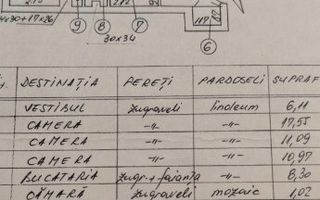 4x30+17x26
9 8 7 6
30x34
DESTINAȚIA PEREȚI PARDOSELI SUPRAF
VESTIBUL zugraveli linoleum 6,11
CAMERA -"- -"- 17,55
CAMERA -"- -"- 11,09
CAMERA -"- -"- 10,97
BUCATARIA zugr.+faianta -"- 8,30
CĂMARĂ zugraveli mozaic 1,02